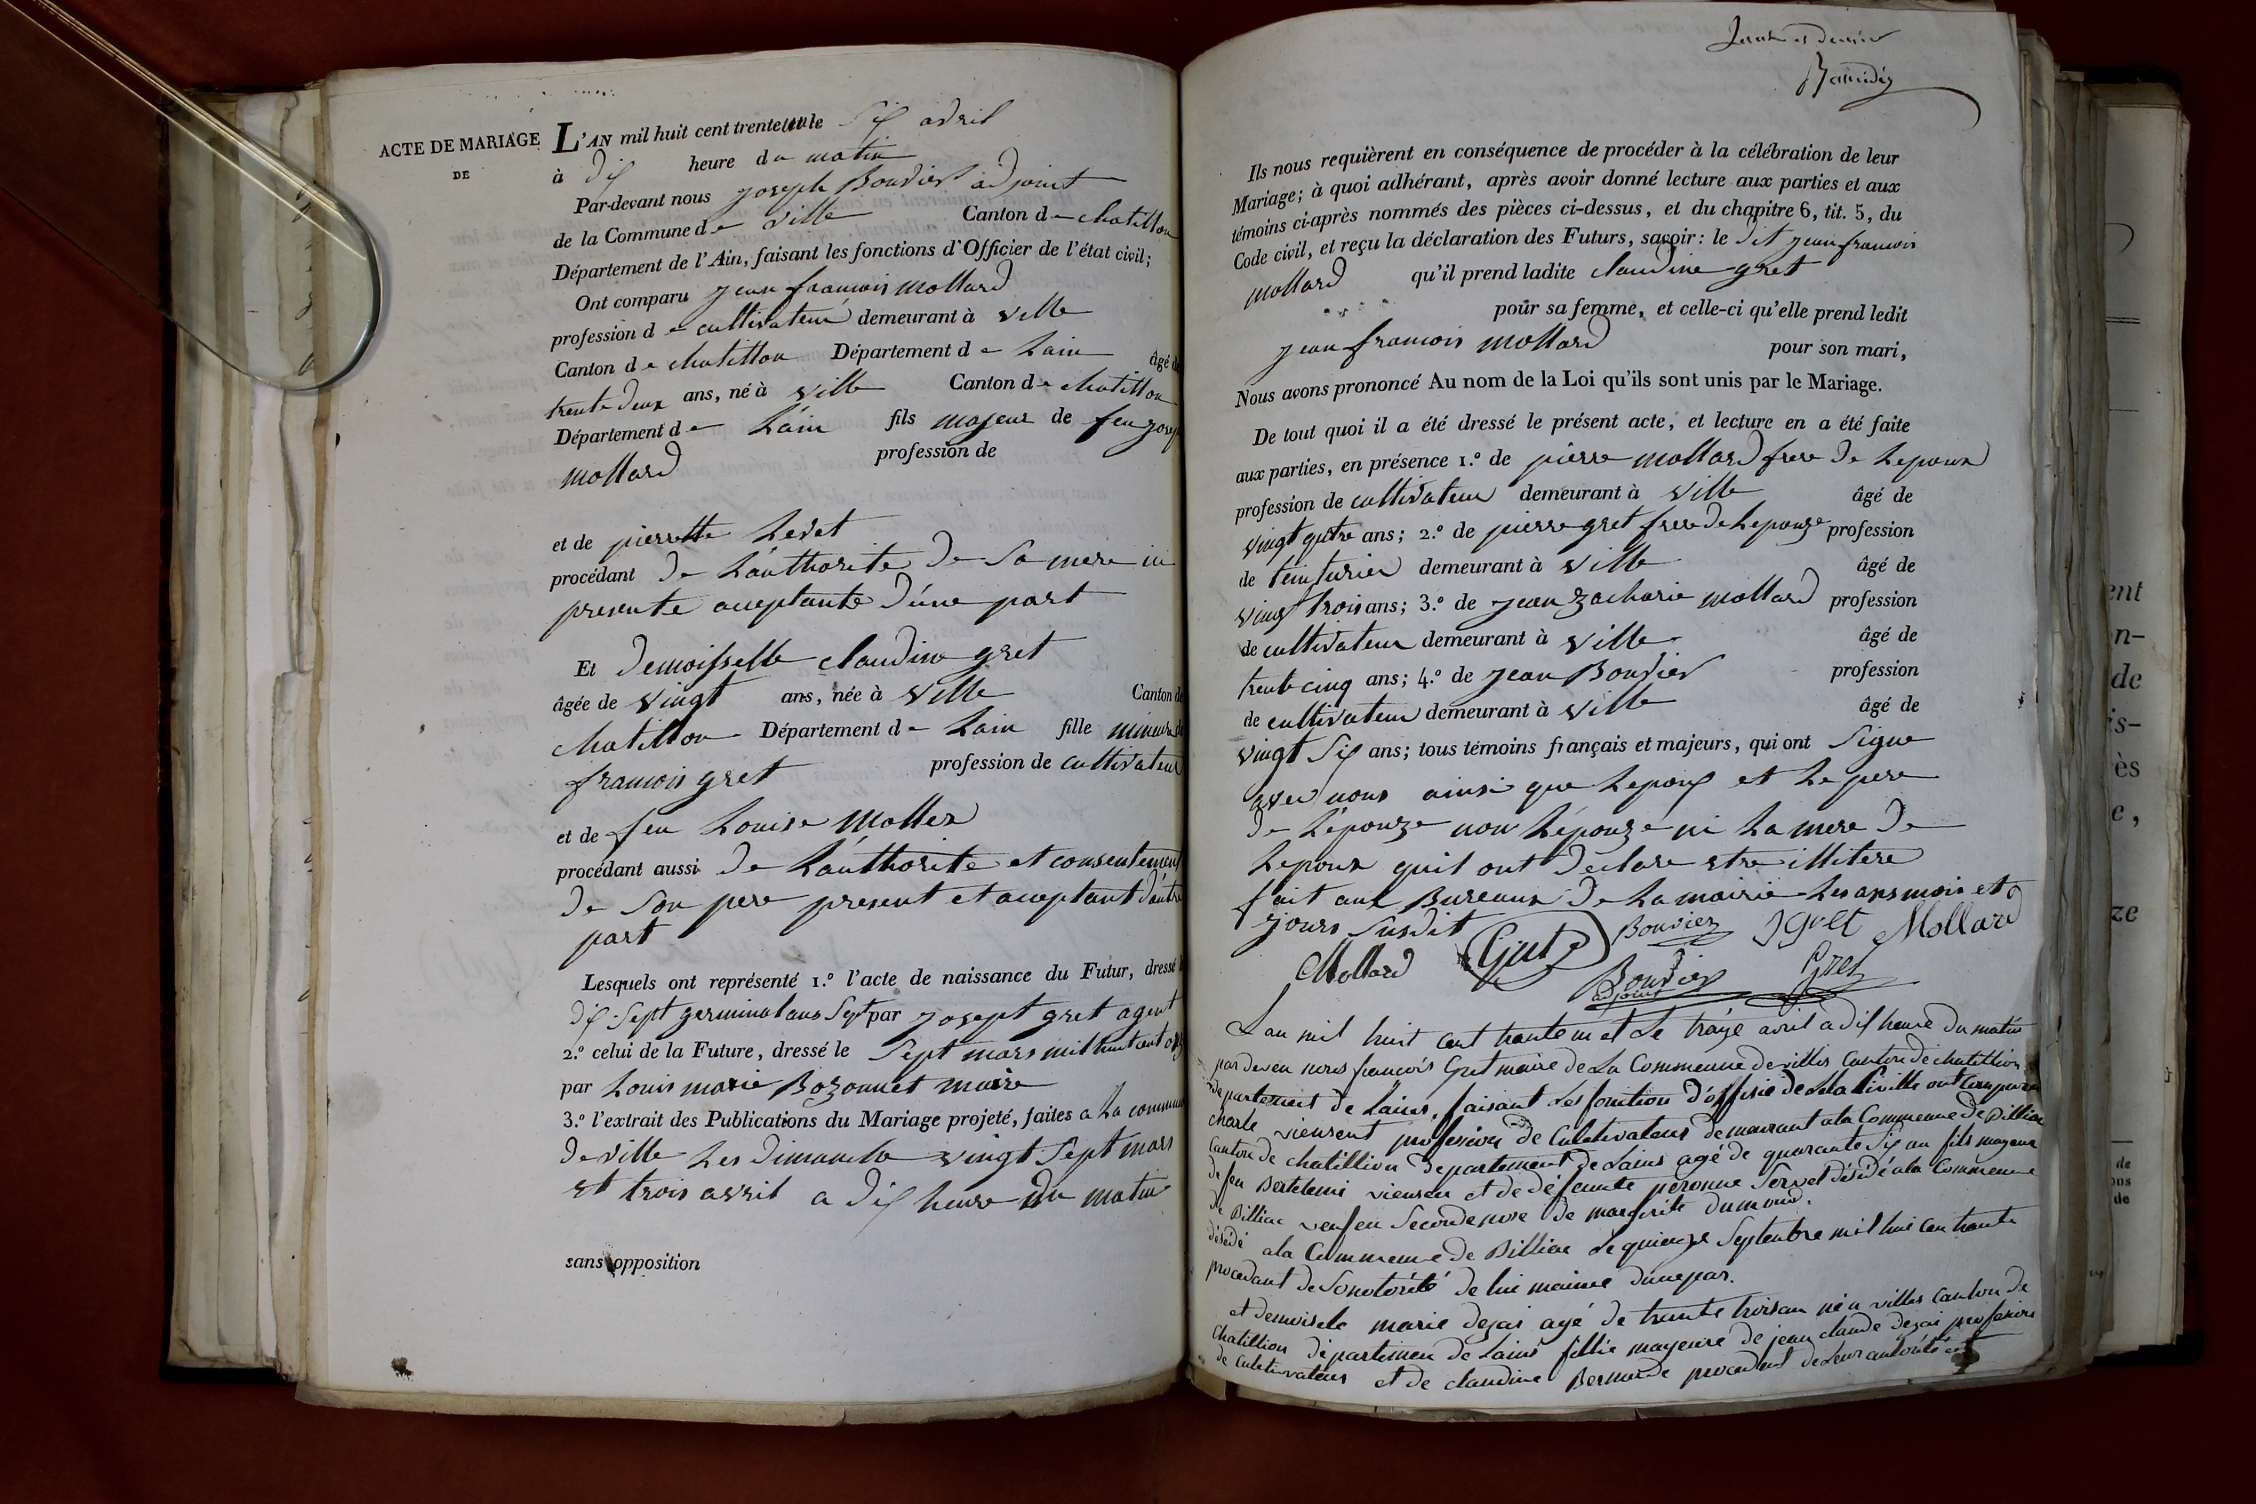 ACTE DE MARIAGE
DE
L'AN mil huit cent trente un le Six avril
à dix heure du matin
Par-devant nous joseph Bouvier adjoint
de la Commune de ville Canton de chatillon
Département de l'Ain, faisant les fonctions d'Officier de l'état civil;
Ont comparu jean francois mollard
profession de cultivateur demeurant à ville
Canton de chatillon Département de Lain âgé de
trente deux ans, né à ville Canton de chatillon
Département de Lain fils majeur de feu joseph
mollard profession de
et de pierrette Levet
procédant de Lauthorite de Sa mere ici
presente acceptante d'une part
Et demoisselle claudine gret
âgée de vingt ans, née à ville Canton de
chatillon Département de Lain fille mineure de
francois gret profession de cultivateur
et de feu Louise Mollex
procédant aussi de Lauthorite et consentement
de Son pere present et acceptant d'autre
part
Lesquels ont représenté 1.º l'acte de naissance du Futur, dressé le
dix Sept germinal ans Sept par josept gret agent
2.º celui de la Future, dressé le Sept mars mil huit cent onze
par Louis marie Bozonnet maire
3.º l'extrait des Publications du Mariage projeté, faites a La commune
de ville Les dimanche vingt Sept mars
et trois avril a dix heure du matin
sans opposition
Ils nous requièrent en conséquence de procéder à la célébration de leur
Mariage; à quoi adhérant, après avoir donné lecture aux parties et aux
témoins ci-après nommés des pièces ci-dessus, et du chapitre 6, tit. 5, du
Code civil, et reçu la déclaration des Futurs, savoir: le dit jean francois
mollard qu'il prend ladite claudine gret
pour sa femme, et celle-ci qu'elle prend ledit
jean francois mollard pour son mari,
Nous avons prononcé Au nom de la Loi qu'ils sont unis par le Mariage.
De tout quoi il a été dressé le présent acte, et lecture en a été faite
aux parties, en présence 1.º de pierre mollard frere de Lepoux
profession de cultivateur demeurant à ville âgé de
vingt qutre ans; 2.º de pierre gret frere de Lepouze profession
de teinturier demeurant à ville âgé de
vingt trois ans; 3.º de jean zacharie mollard profession
de cultivateur demeurant à ville âgé de
trente cinq ans; 4.º de jean Bouvier profession
de cultivateur demeurant à ville âgé de
vingt Six ans; tous témoins français et majeurs, qui ont Signe
avec nous ainsi que Lepoux et Le pere
de Lépouze non Lépouze ni La mere de
Lepoux quil ont declare etre illitere
fait aux Bureaux de La mairie Les ans mois et
jours Susdit Bouvier J gret Mollard
Mollard Gret Bouvier Gret
adjoint
Lan mil huit cent trante un et Le traize avril a dix heure du matin
par deven nous francois Gret maire de La Commeune de villes Canton de chatillion
departement de Lains, faisant Les fonition d'offisie de Leta Siville ont Comparu
charle vieusent profesion de Culetivateur demeurant ala Commeune de Billiac
Canton de chatillion departement de Lains agé de quarante Six an fils mageur
de feu Bertelemi et de défeunte peronne Servet désidé ala Commeune
de Billiac veuf en Seconde nose de margerite dumond.
désédé ala Commeune de Billiac Le quienze Septenbre mil hui cen trante
procedant de Sonotorité de lui maime dunepar.
et demoisele marie dejai agé de trante troisan né a villes Canton de
Chatillion départemen de Lains fillie mageure de jean claude dejai profesion
de Culetivateur et de claudine Bernarde procedent de Leur autorité